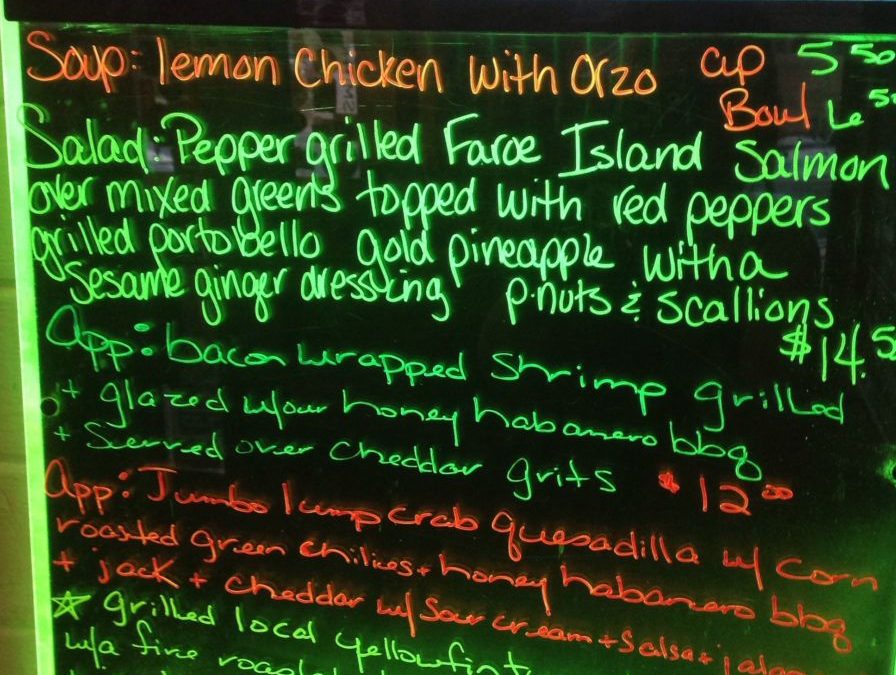 Soup: lemon Chicken with Orzo cup 5 50
Bowl 6
Salad: Pepper grilled Faroe Island Salmon
over mixed greens topped with red peppers
grilled portobello gold pineapple with a
Sesame ginger dressing p.nuts & scallions
$14.5
App: bacon wrapped Shrimp grilled
+ glazed w/our honey habanero bbq
+ Served over Cheddar grits $12 00
App: Jumbo lump crab quesadilla w/ corn
roasted green chilies + honey habanero bbq
+ jack + cheddar w/ sour cream + salsa +
☆ grilled local yellowfin
w/a fire